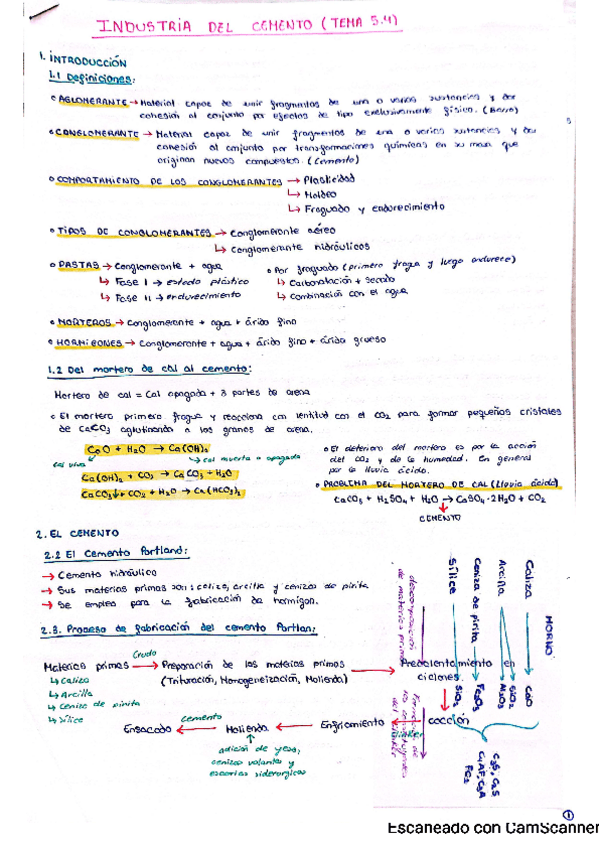 INDUSTRIA DEL CEMENTO (TEMA 5.4)
1. INTRODUCCIÓN
1.1 Definiciones:
• AGLOMERANTE → Material capaz de unir fragmentos de una o varias sustancias y dar
cohesión al conjunto por efectos de tipo exclusivamente físico. (Barro)
• CONGLOMERANTE → Material capaz de unir fragmentos de una o varias sustancias y dar
cohesión al conjunto por transformaciones químicas en su masa que
originan nuevos compuestos. (Cemento)
• COMPORTAMIENTO DE LOS CONGLOMERANTES → Plasticidad
↳ Moldeo
↳ Fraguado y endurecimiento
• TIPOS DE CONGLOMERANTES → Conglomerante aéreo
↳ Conglomerante hidráulicos
• PASTAS → Conglomerante + agua
↳ Fase I → estado plástico
↳ Fase II → endurecimiento
• Por fraguado (primero fragua y luego endurece)
↳ Carbonatación + secado
↳ Combinación con el agua
• MORTEROS → Conglomerante + agua + árido fino
• HORMIGONES → Conglomerante + agua + árido fino + árido grueso
1.2 Del mortero de cal al cemento:
Mortero de cal = Cal apagada + 3 partes de arena
• El mortero primero fragua y reacciona con lentitud con el CO₂ para formar pequeños cristales
de CaCO₃ aglutinando a los granos de arena.
CaO + H₂O → Ca(OH)₂
cal viva
↳ cal muerta o apagada
Ca(OH)₂ + CO₂ → CaCO₃ + H₂O
CaCO₃↓ + CO₂ + H₂O → Ca(HCO₃)₂
• El deterioro del mortero es por la acción
del CO₂ y de la humedad. En general
por la lluvia ácida.
• PROBLEMA DEL MORTERO DE CAL (Lluvia ácida)
CaCO₃ + H₂SO₄ + H₂O → CaSO₄·2H₂O + CO₂
↓
CEMENTO
2. EL CEMENTO
2.2 El Cemento Portland:
→ Cemento hidráulico
→ Sus materias primas son: caliza, arcilla y cenizas de pirita
→ Se emplea para la fabricación de hormigón.
2.3. Proceso de fabricación del cemento Portlan:
Materias primas → Crudo Preparación de las materias primas → Precalentamiento en
↳ Caliza
(Trituración, Homogeneización, Molienda)
ciclones
↳ Arcilla
↳ Ceniza de pirita
↳ Sílice
Ensacado ← cemento Molienda ← Enfriamiento ← clínker cocción
adición de yeso,
cenizas volantes y
escorias siderurgicas
HORNO
Caliza
CaO
Arcilla
SiO₂
Al₂O₃
Ceniza de pirita
Fe₂O₃
Sílice
SiO₂
descomposición
de materias primas
C₃S, C₂S
C₄AF, C₃A
①
Escaneado con CamScanner